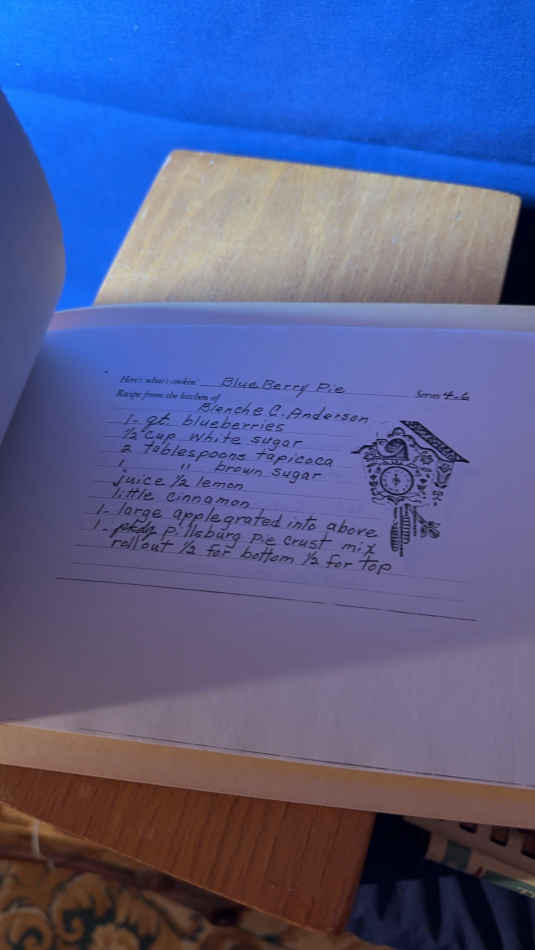 Here's what's cookin' Blue Berry Pie Serves 4-6
Recipe from the kitchen of Blenche C. Anderson
1- qt. blueberries
1/2 cup white sugar
2 tablespoons tapicoca
1 " brown sugar
juice 1/2 lemon
little cinnamon
1- large apple grated into above
1- Pillsburg pie crust mix
roll out 1/2 for bottom 1/2 for top